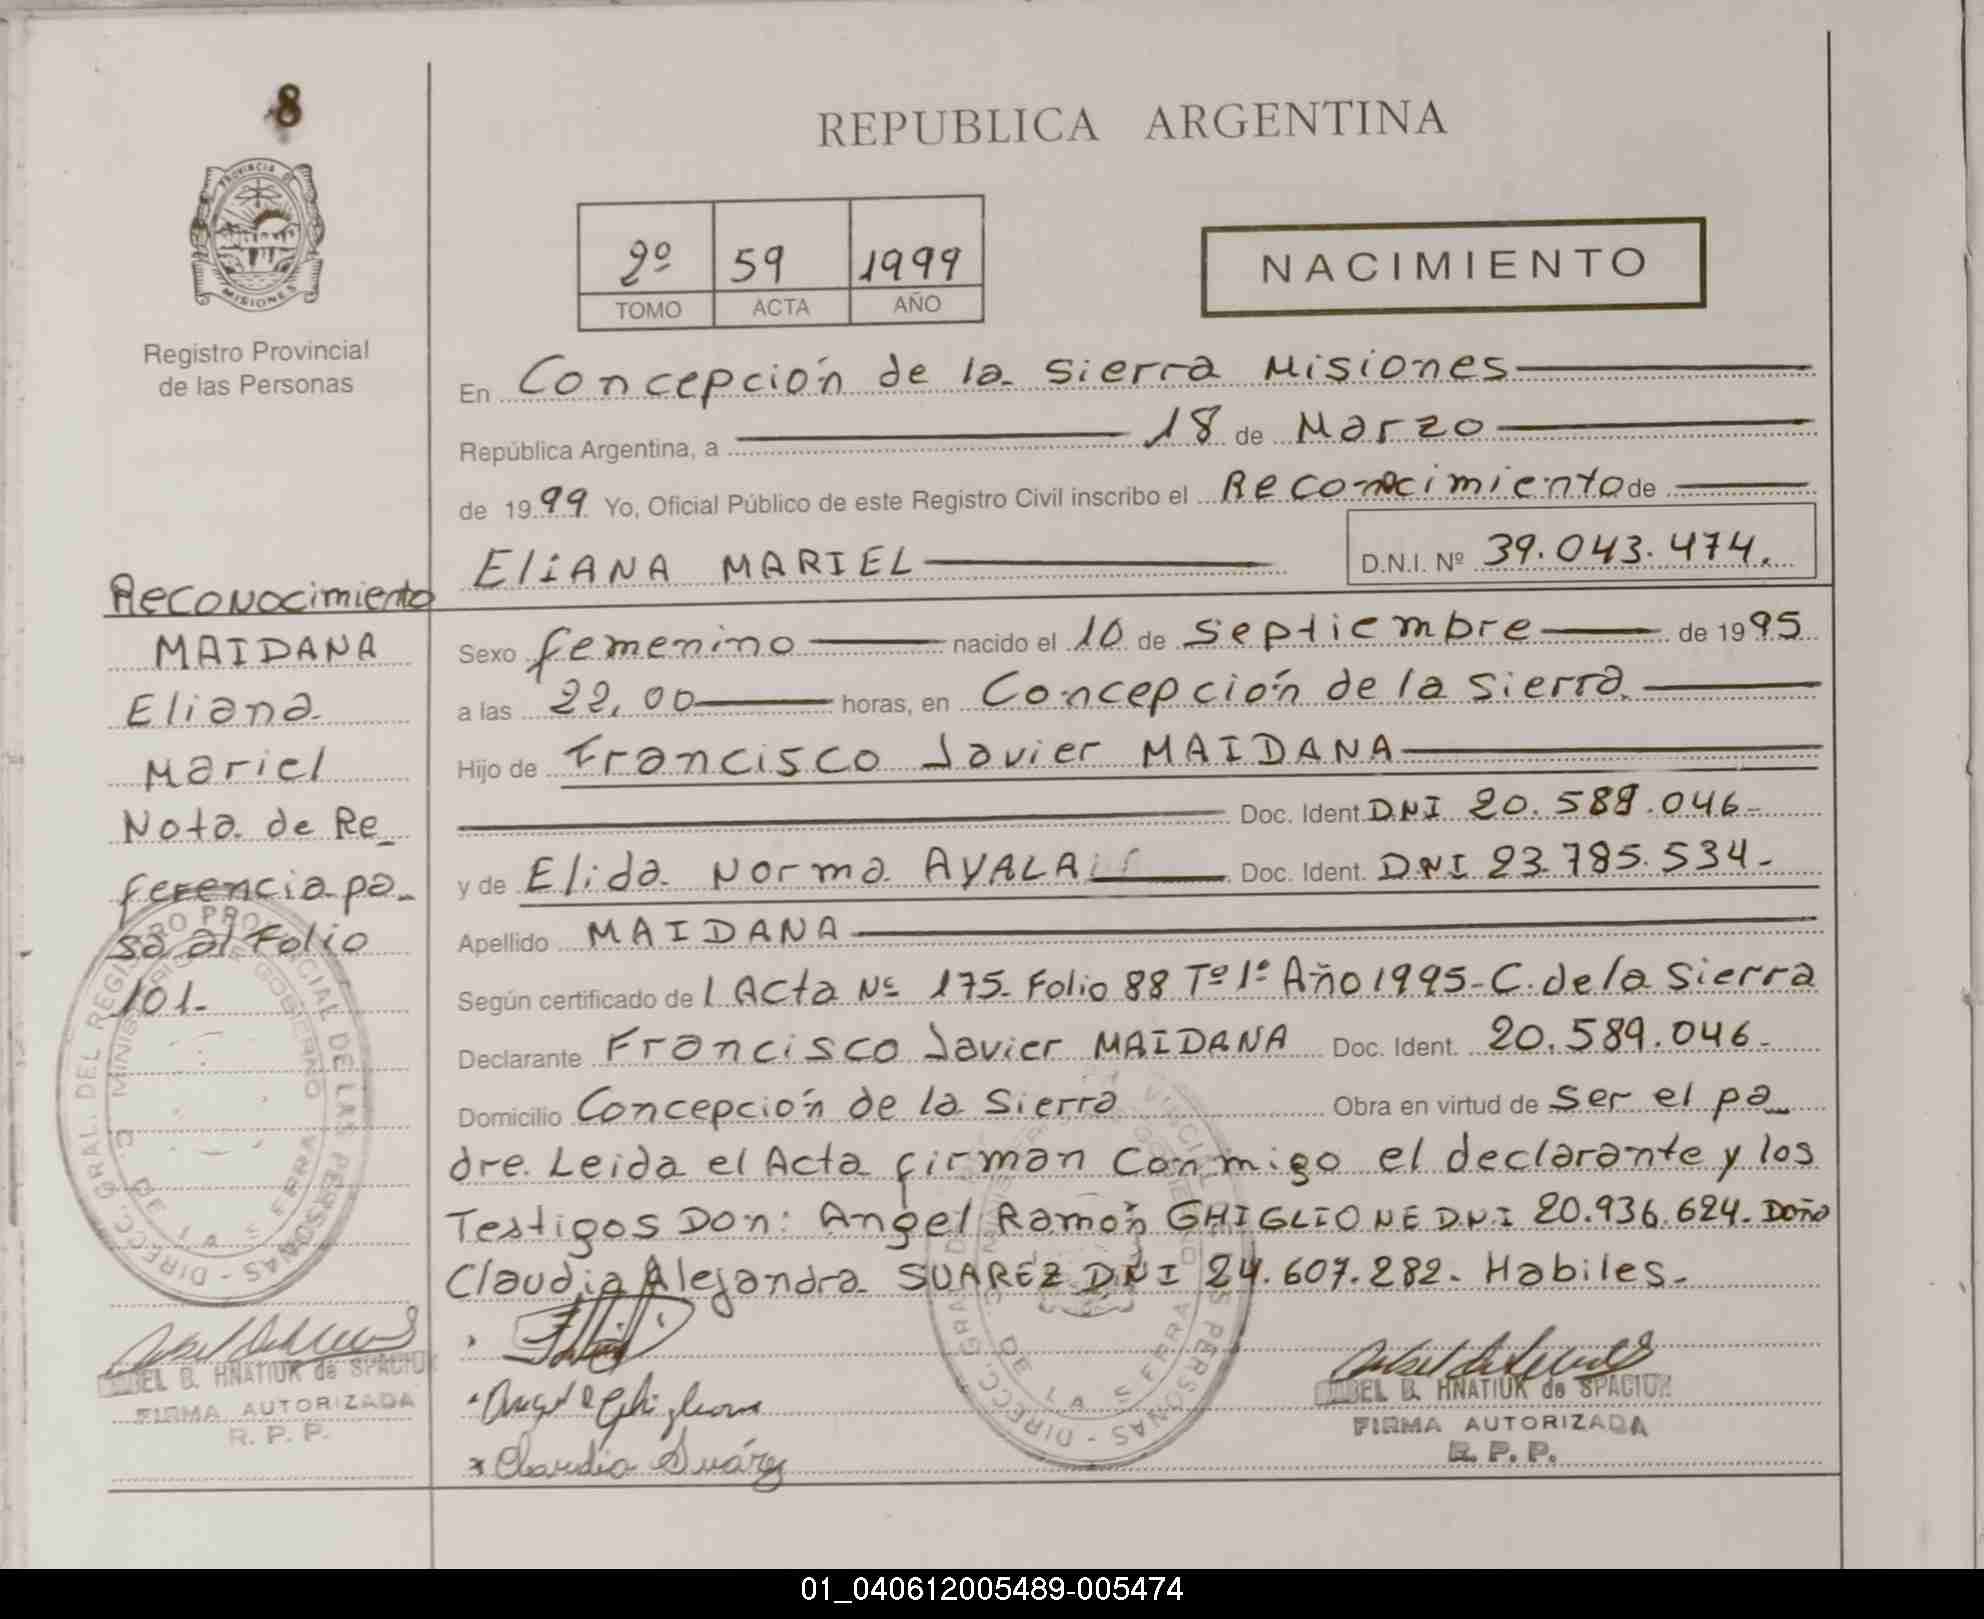 8
PROVINCIA DE
MISIONES
Registro Provincial
de las Personas
REPUBLICA ARGENTINA
2º 59 1999
TOMO ACTA AÑO
NACIMIENTO
En Concepción de la Sierra Misiones
República Argentina, a 18 de Marzo
de 1999 Yo, Oficial Público de este Registro Civil inscribo el Reconocimiento de
ELIANA MARIEL D.N.I. Nº 39.043.474.
Sexo femenino nacido el 10 de septiembre de 1995
a las 22,00 horas, en Concepción de la Sierra
Hijo de Francisco Javier MAIDANA
Doc. Ident. DNI 20.589.046-
y de Elida Norma AYALA Doc. Ident. DNI 23.785.534-
Apellido MAIDANA
Según certificado de l Acta Nº 175- Folio 88 Tº 1º Año 1995- C. de la Sierra
Declarante Francisco Javier MAIDANA Doc. Ident. 20.589.046-
Domicilio Concepción de la Sierra Obra en virtud de Ser el pa_
dre. Leida el Acta firman conmigo el declarante y los
Testigos Don: Angel Ramón GHIGLIONE DNI 20.936.624- Doña
Claudia Alejandra SUAREZ DNI 24.607.282- Habiles-
Claudia Suárez
HNATIUK de SPACIUK
FIRMA AUTORIZADA
R. P. P.
Reconocimiento
MAIDANA
Eliana
Mariel
Nota de Re_
ferencia pa_
sa al Folio
101-
DIRECC. GRAL. DEL REGISTRO PROVINCIAL DE LAS PERSONAS
MINISTERIO DE GOBIERNO
C. DE LA SIERRA
HNATIUK de SPACIUK
FIRMA AUTORIZADA
R. P. P.
01_040612005489-005474